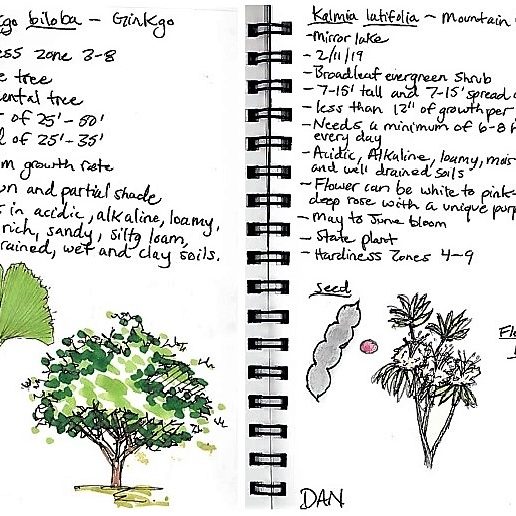 go biloba - Ginkgo
ess zone 3-8
e tree
ental tree
r of 25'-50'
l of 25'-35'
m growth rate
wn and partial shade
s in acidic, alkaline, loamy,
rich, sandy, silty loam,
rained, wet and clay soils.
Kalmia latifolia - Mountain
-Mirror lake
- 2/11/19
-Broadleaf evergreen shrub
- 7-15' tall and 7-15' spread
- less than 12" of growth per
- Needs a minimum of 6-8 h
every day
- Acidic, Alkaline, loamy, moi
and well drained soils
- Flower can be white to pink
deep rose with a unique purp
- may to June bloom
- State plant
- Hardiness Zones 4-9
seed
Fl
DAN